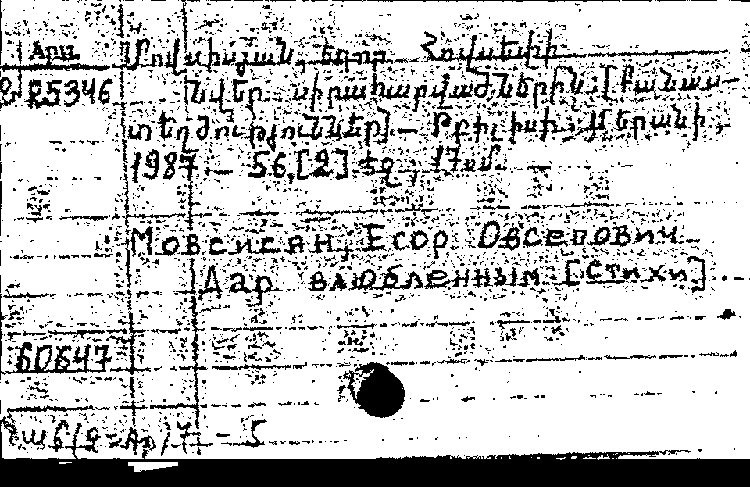 Арм. Մովսիսյան, Եգոր Հովսեփի
2-25346 Նվեր սիրահարվածներին: [Բանաս-
տեղծություններ].- Թբիլիսի: Մերանի,
1987.- 56,[2] էջ, 17սմ.
Мовсисян, Егор Овсепович
Дар влюбленным: [Стихи].
60647
6(2=Ар)7 - 5